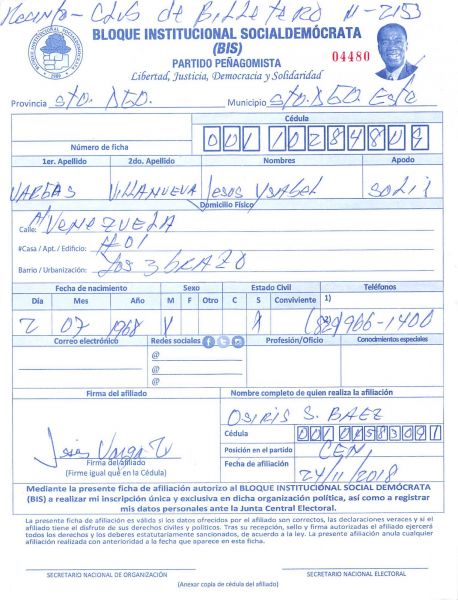 BLOQUE INSTITUCIONAL SOCIALDEMÓCRATA
(BIS)
04480
PARTIDO PEÑAGOMISTA
Libertad, Justicia, Democracia y Solidaridad
Provincia Sto. Dgo. Municipio Sto. Dgo. Este
Cédula
Número de ficha
1er. Apellido 2do. Apellido Nombres Apodo
VARGAS VILLANUEVA Jesus YSABEL SOLIS
Domicilio Físico
Calle: VENEZUELA
#Casa / Apt. / Edificio: #01
Barrio / Urbanización: LOS 3 BRAZO
Fecha de nacimiento Sexo Estado Civil Teléfonos
Día Mes Año M F Otro C S Conviviente 1)
2 07 1968 X X (829) 966-1400
Correo electrónico Redes sociales Profesión/Oficio Conocimientos especiales
@
@
@
Firma del afiliado Nombre completo de quien realiza la afiliación
OSIRIS S. BAEZ
Cédula
Posición en el partido CEN
Firma del Afiliado
(Firme igual que en la Cédula)
Fecha de afiliación 24/11/2018
Mediante la presente ficha de afiliación autorizo al BLOQUE INSTITUCIONAL SOCIAL DEMÓCRATA
(BIS) a realizar mi inscripción única y exclusiva en dicha organización política, así como a registrar
mis datos personales ante la Junta Central Electoral.
La presente ficha de afiliación es válida si los datos ofrecidos por el afiliado son correctos, las declaraciones veraces y si el
afiliado tiene el disfrute de sus derechos civiles y políticos. Tras su recepción, sello y firma autorizadas el afiliado ejercerá
todos los derechos y los deberes estatutariamente sancionados, de acuerdo a la ley. La presente afiliación anula cualquier
afiliación realizada con anterioridad a la fecha que aparece en esta ficha.
SECRETARIO NACIONAL DE ORGANIZACIÓN SECRETARIO NACIONAL ELECTORAL
(Anexar copia de cédula del afiliado)